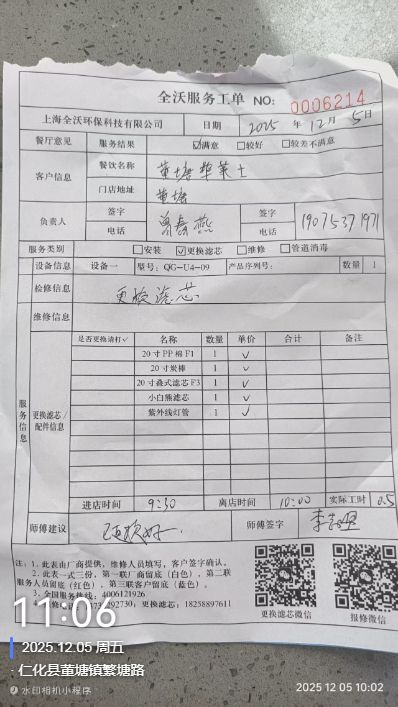 全沃服务工单 NO: 0006214
上海全沃环保科技有限公司 日期 2025 年 12 月 5 日
餐厅意见 服务结果 ☑满意 □较好 □较差不满意
客户信息 餐饮名称 董塘华莱士
门店地址 董塘
负责人 签字 签字
电话 电话 19075371971
服务类别 □安装 ☑更换滤芯 □维修 □管道消毒
设备信息 设备一 型号: QG-U4-09 产品序列号: 数量 1
检修信息 更换滤芯
维修信息
服务信息 更换滤芯/配件信息
是否更换请打✓ 名称 数量 单价 合计 备注
20寸PP棉F1 1 ✓
20寸炭棒 1 ✓
20寸叠式滤芯F3 1 ✓
小白熊滤芯 1 ✓
紫外线灯管 1 ✓
进店时间 9:30 离店时间 10:00 实际工时 0.5
师傅建议 已换好. 师傅签字
注: 1. 此表由厂商提供, 维修人员填写, 客户签字确认。
2. 此表一式三份, 第一联厂商留底(白色), 第二联
服务人员留底(红色), 第三联客户留底(蓝色)。
3. 全国服务热线: 4006121926
更换滤芯: 18258897611
更换滤芯微信 报修微信
11:06
2025.12.05 周五
仁化县董塘镇繁塘路
水印相机小程序
2025 12 05 10:02